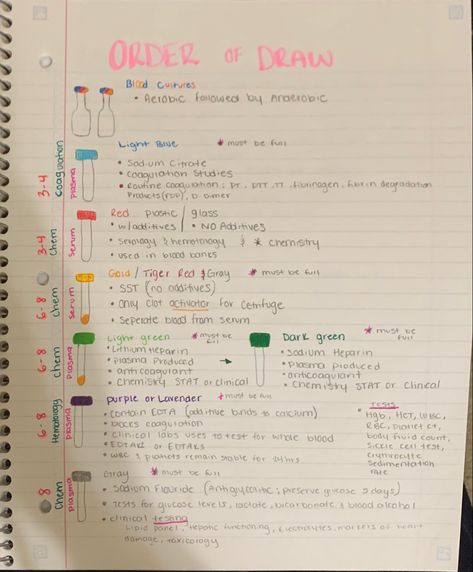 ORDER OF DRAW
Blood Cultures
• Aerobic followed by Anaerobic
3-4
Coagulation
Plasma
Light Blue * must be full
• Sodium Citrate
• Coagulation Studies
• Routine Coagulation: PT, PTT, TT, fibrinogen, fibrin degradation
Products (FDP), D. Dimer
3-4
Chem
Serum
Red Plastic / glass
• w/additives / • NO Additives
• Serology & hematology & * chemistry
• used in blood banks
6-8
Chem
Serum
Gold / Tiger Red & Gray * must be full
• SST (no additives)
• Only Clot activator for
• Seperate blood from serum
6-8
Chem
Plasma
Light green * must be full
• Lithium Heparin
• Plasma Produced
• anticoagulant
• Chemistry STAT or clinical
Dark green * must be full
• Sodium Heparin
• Plasma produced
• anticoagulant
• Chemistry STAT or Clinical
6-8
Hematology
Plasma
Purple or Lavender * must be full
• Contain EDTA (additive binds to calcium)
• blocks coagulation
• Clinical labs uses to test for whole blood
• WBC & platlets remain stable for 24hrs
* Tests
Hgb, HCT, WBC,
RBC, Diffret CT,
body fluid count,
Sickle cell test,
erythrocyte
Sedimentation
rate
8
Chem
Plasma
Gray * must be full
• Sodium Flouride (Antiglycolitic; preserve glucose 3 days)
• Tests for glucose levels, lactate, bicarbonate & blood alcohol
• Clinical testing
Lipid panel, hepatic functioning, Electrolytes, markers of heart
damage, toxicology